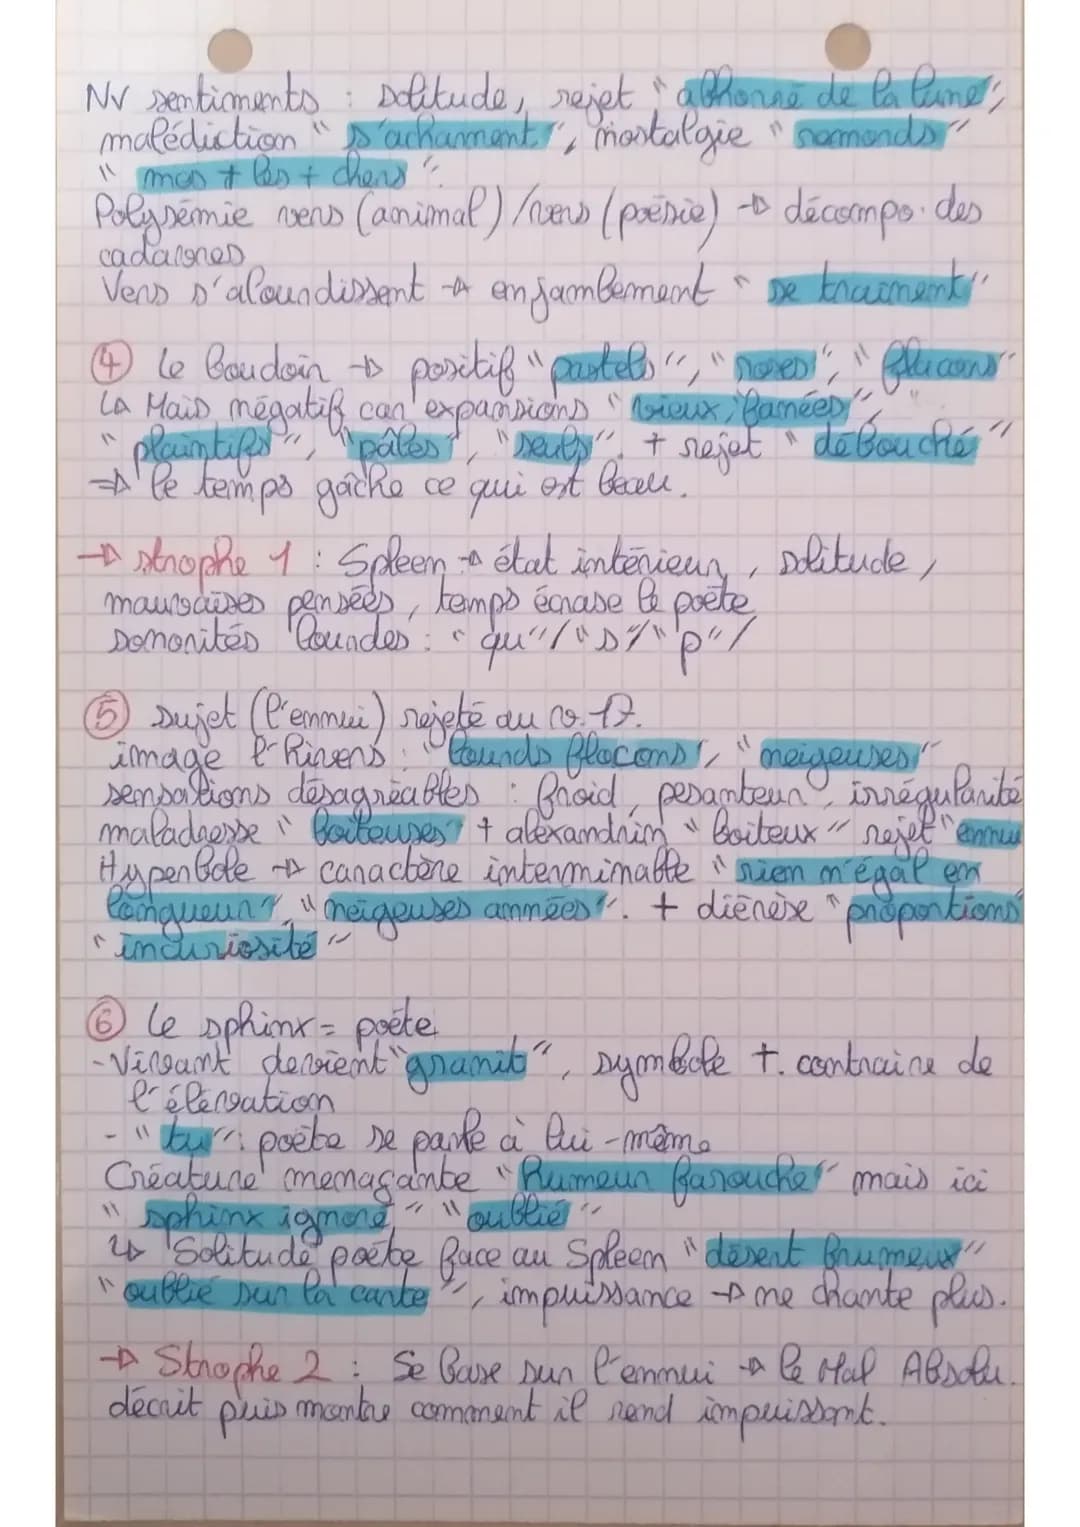 Nv sentiments : Solitude, rejet "abhorré de la lune",
malédiction "s'acharnent", nostalgie "remords"
"mes + les + chers".
Polysémie vers (animal)/vers (poésie) → décompo. des
cadavres
Vers s'alourdissent → enjambement "se trainent"
④ Le boudoir → positif "pastels", "roses", "flacons"
↳ Mais négatif car expansions "vieux, fanées",
"plaintifs", "pâles", "seuls". + rejet "débouché"
⇒ le temps gâche ce qui est beau.
→ strophe 1 : Spleen → état intérieur, solitude,
mauvaises pensées, temps écrase le poète
sonorités lourdes : "qu"/"s"/"p"/
⑤ Sujet (l'ennui) rejeté au v. 17.
image l'hivers : "lourds flocons", "neigeuses"
sensations désagréables : froid, pesanteur, irrégularité
maladresse "boiteuses" + alexandrin "boiteux" rejet "ennui
Hyperbole → caractère interminable "rien n'égal en
longueur", "neigeuses années". + diérèse "proportions"
"incuriosité"
⑥ Le sphinx = poète
- Vivant devient "granit", symbole + contraire de
l'élévation
- "tu" : poète se parle à lui-même
Créature menaçante "humeur farouche" mais ici
"sphinx ignoré," "oublié"
↳ Solitude poète face au Spleen "désert brumeux"
"oublié sur la carte", impuissance → ne chante plus.
→ Strophe 2 : Se base sur l'ennui → le Mal Absolu.
décrit puis montre comment il rend impuissant.